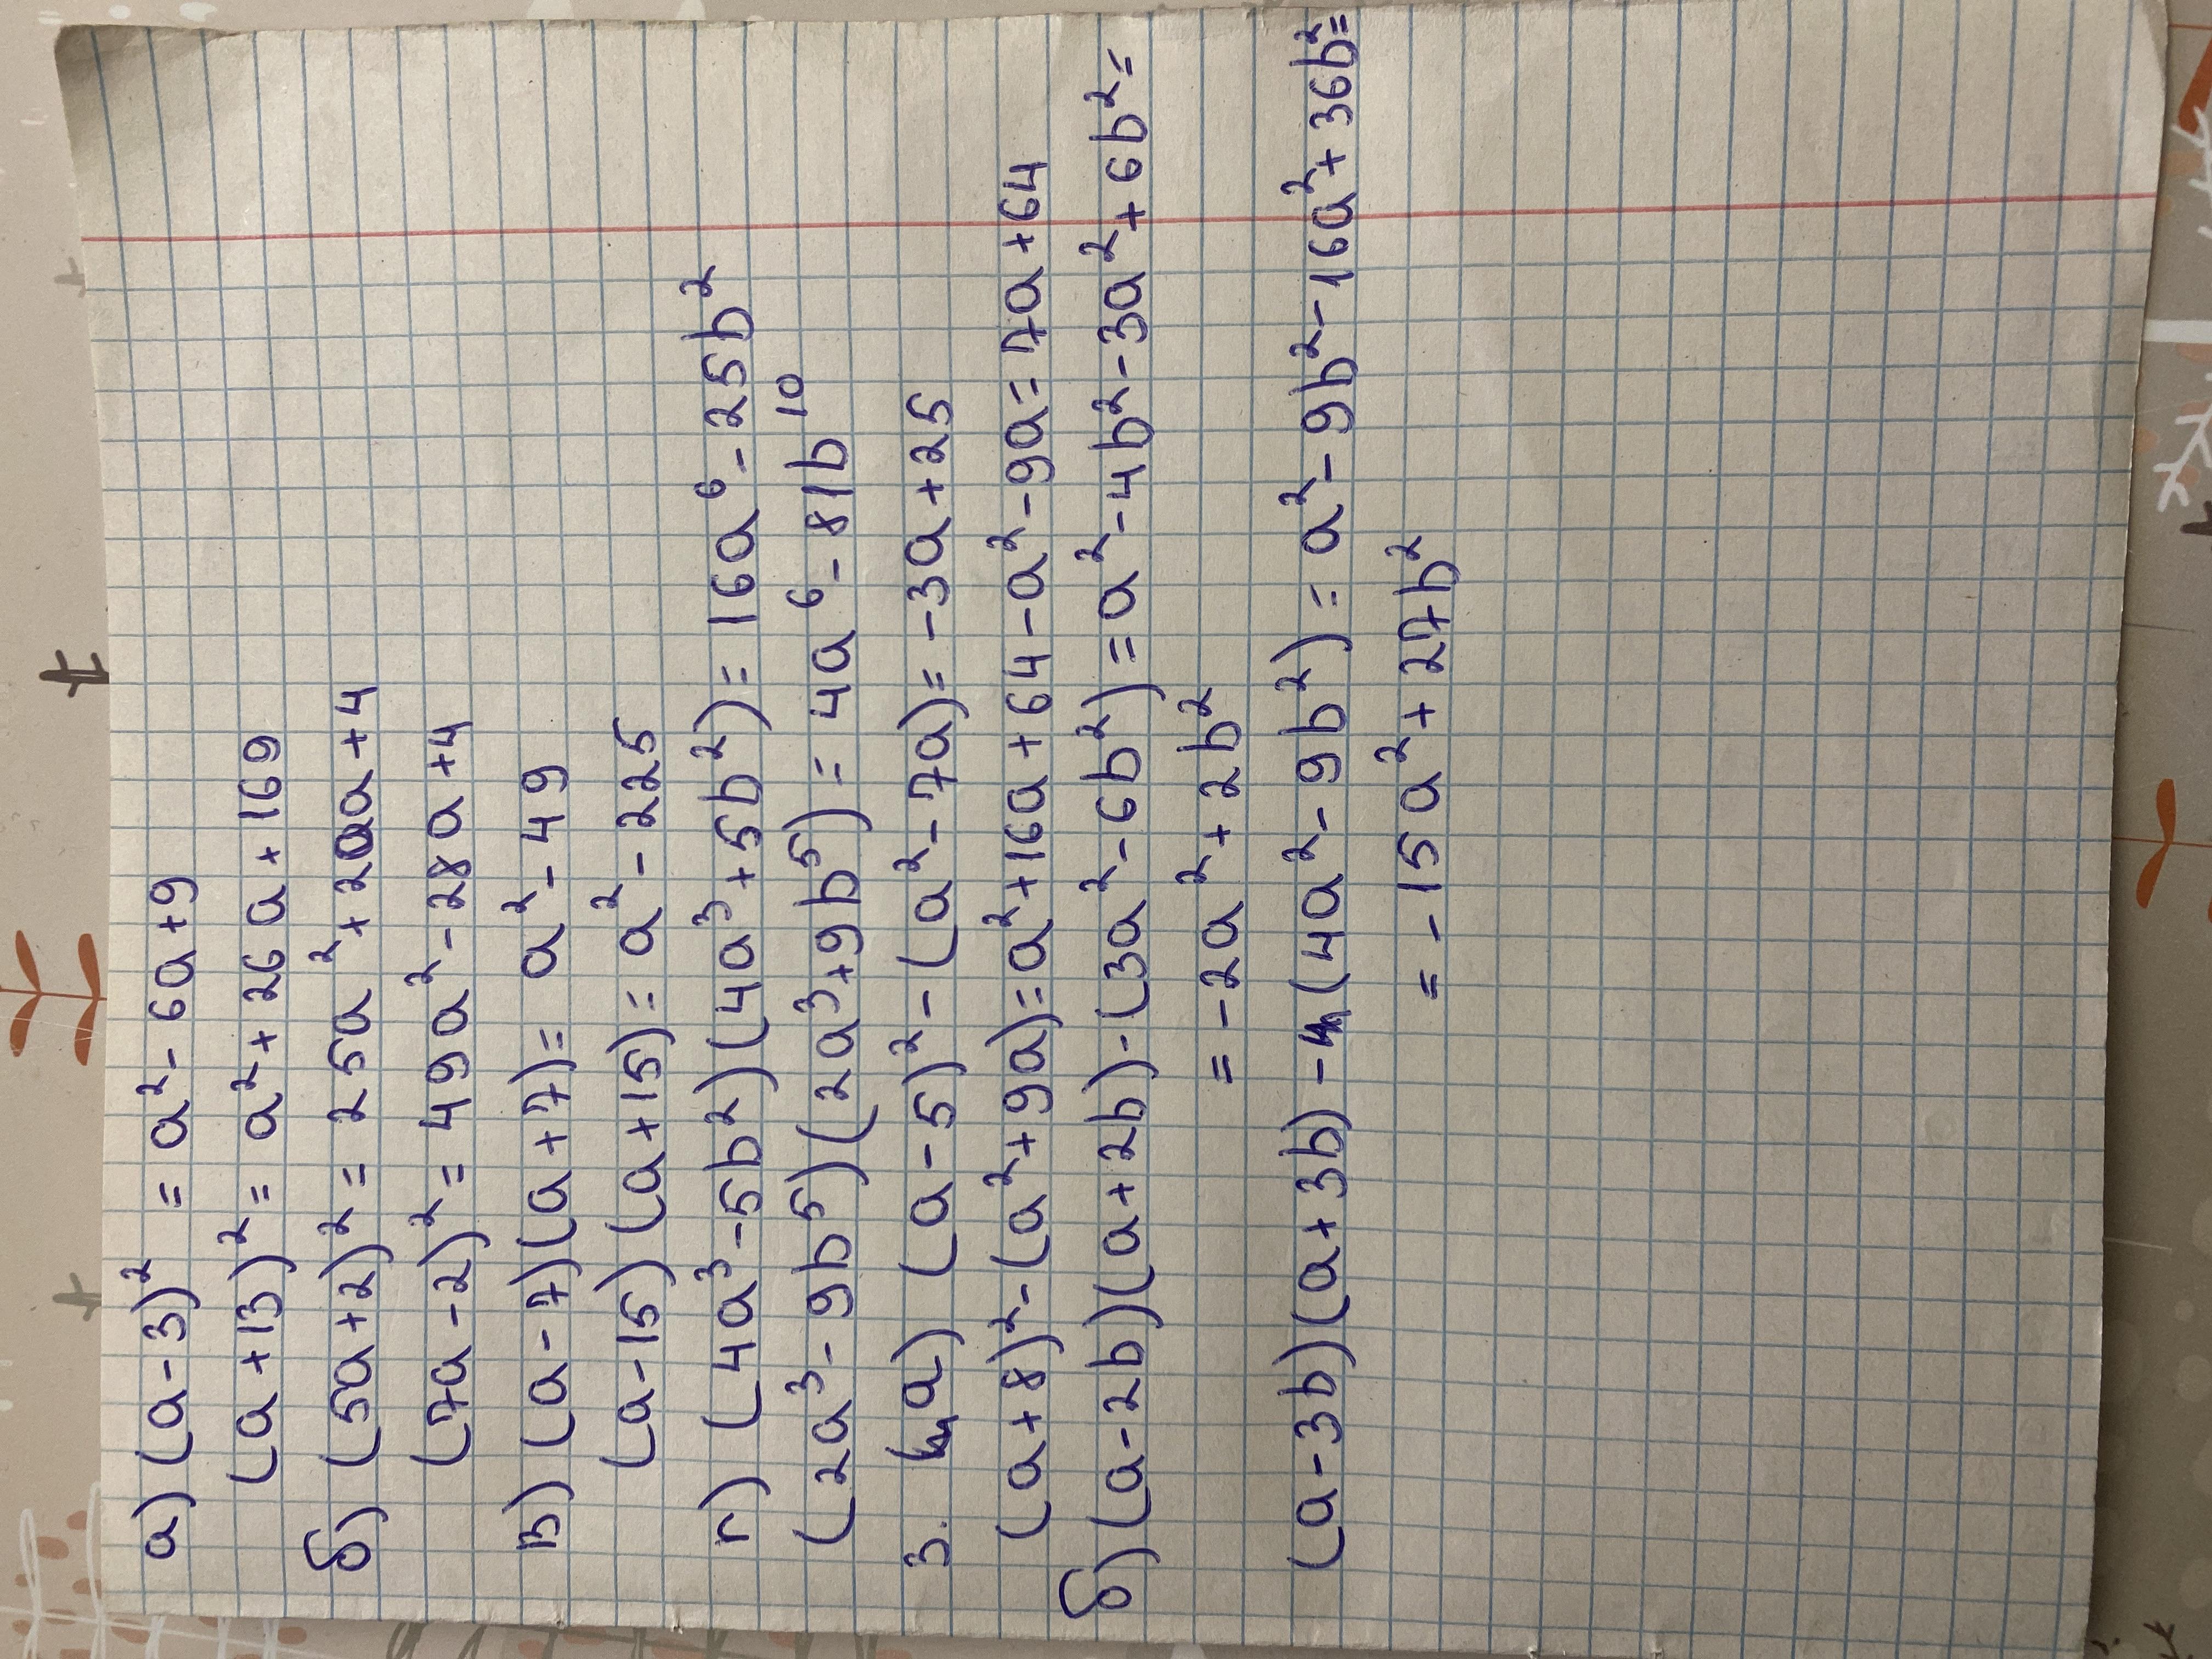 а) (a-3)² = a²-6a+9
(a+13)² = a²+26a+169
б) (5a+2)² = 25a²+20a+4
(7a-2)² = 49a²-28a+4
в) (a-7)(a+7) = a²-49
(a-15)(a+15) = a²-225
г) (4a³-5b²)(4a³+5b²) = 16a⁶-25b²
(2a³-9b⁵)(2a³+9b⁵) = 4a⁶-81b¹⁰
3. а) (a-5)²-(a²-7a) = -3a+25
(a+8)²-(a²+9a) = a²+16a+64-a²-9a = 7a+64
б) (a-2b)(a+2b)-(3a²-6b²) = a²-4b²-3a²+6b² =
= -2a²+2b²
(a-3b)(a+3b)-4(4a²-9b²) = a²-9b²-16a²+36b² =
= -15a²+27b²